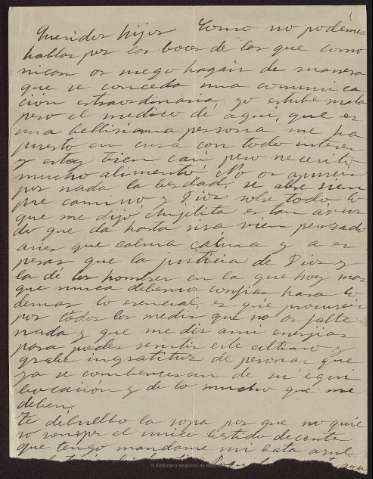 Queridos hijos Como no podemos
hablar por las bocas de los que comu
nican os ruego hagáis de manera
que se conceda una comunica
ción extraordinaria, yo estube mala
pero el medico de aqui, que es
una bellisima persona me ha
puesto en cura con todo interes
y estoy bien casi, pero necesito
mucho alimento, no os apureis
por nada la verdad se abre siem
pre camino y Dios sobre todo, lo
que me dijo Angelita es tan
do que da hasta risa bien pensado
asies que calma calma y a es
perar que la justicia de Dios y
la de los hombres en la que hoy mas
que nunca debemos confiar hara lo
demas lo esencial es que procureis
por todos los medios que no os falte
nada y que me deis a mi energias
para poder resistir este ultimo y
grabe ingratitud de personas que
ya se combenceran de su equi
bocación y de lo mucho que me
deben,
te debuelbo la ropa por que no quie
ro romper el unico bestido decente
que tengo mandame mi bata
Biblioteca Regional de